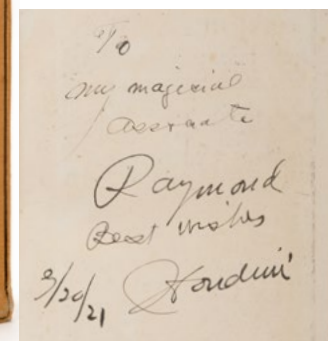 To
my magical
associate
Raymond
Best wishes
Houdini
3/20/21